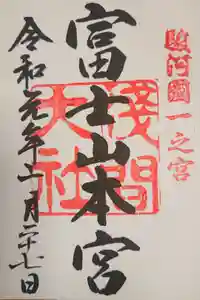 駿河國一之宮
富士山本宮
淺間大社
令和元年十一月二十七日